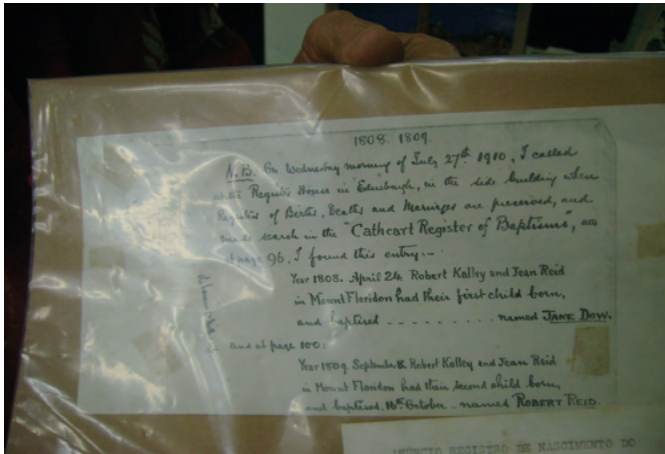 1808. 1809.
N.B. On Wednesday morning of July 27th 1910, I called
at the Register House in Edinburgh, in the side building where
Registers of Births, Deaths and Marriages are preserved, and
made search in the "Cathcart Register of Baptisms", and
at page 96, I found this entry:-
Year 1808. April 24. Robert Kalley and Jean Reid
in Mount Floridon had their first child born,
and baptised - - - - - - - - - named JANE DOW.
and at page 100:
Year 1809. September 8. Robert Kalley and Jean Reid
in Mount Floridon had their second child born,
and baptised, 16th October - named ROBERT REID.
REGISTRO DE NASCIMENTO DO